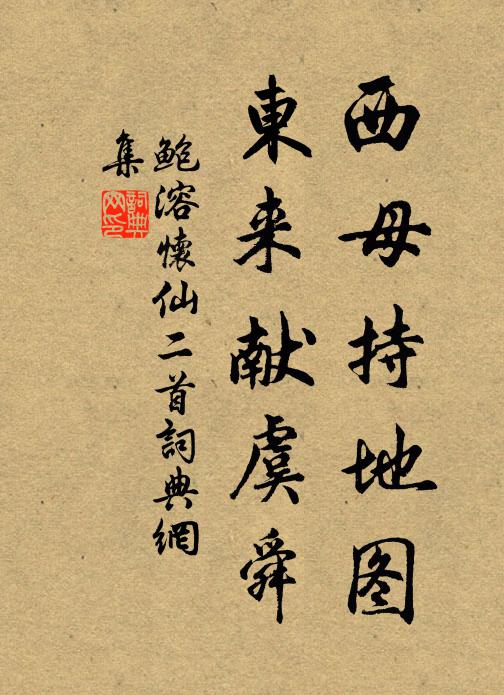 西母持地图
東来献虞舜
鲍溶懷仙二首詞典網
集
詞典网印